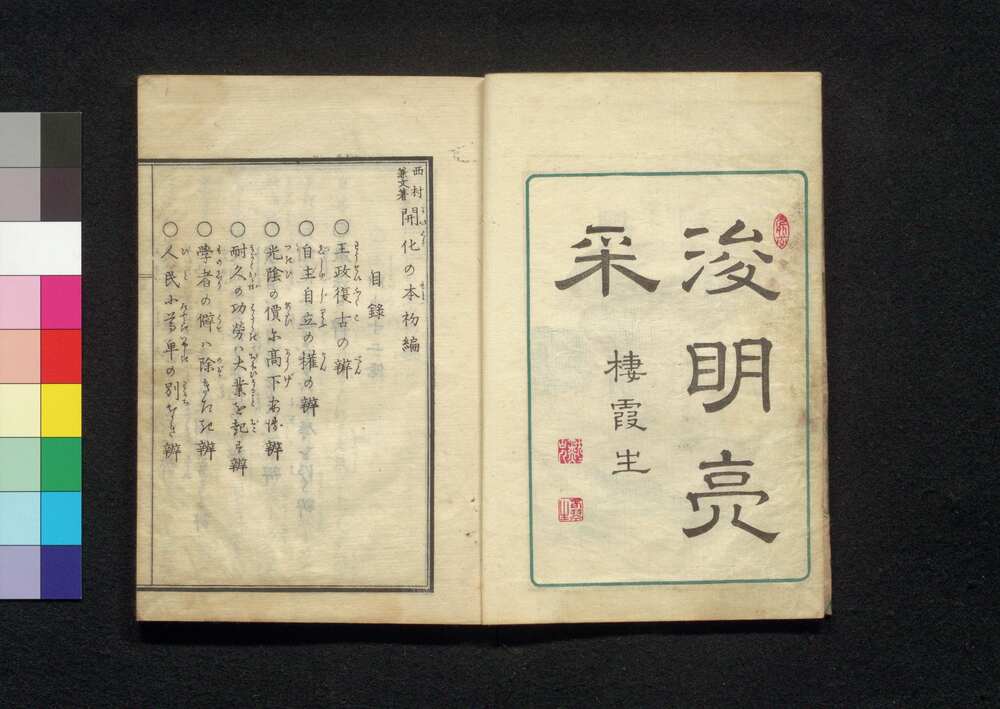 浚明亮
采
棲霞生
西村
兼文著
開化の本初編
目錄
○王政復古の辨
○自主自立の權の辨
○光陰の價に高下ある辨
○耐久の功勞ハ大業を起す辨
○學者の僻ハ除きたき辨
○人民に尊卑の別なき辨